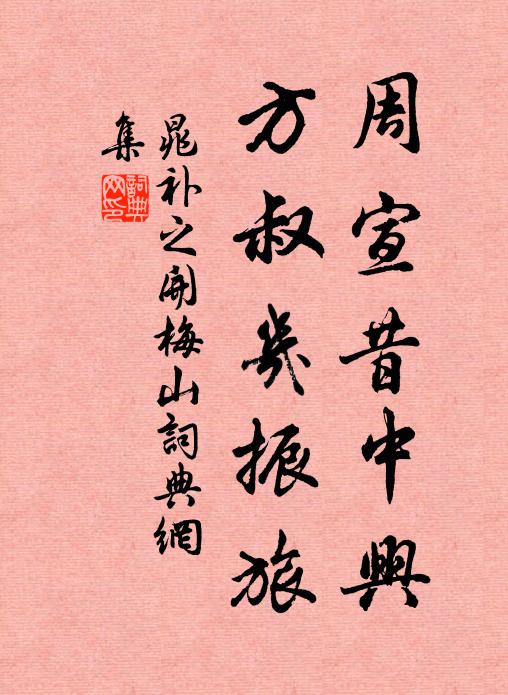 周宣昔中興
方叔幾振旅
晁补之開梅山詞典網
集
詞典
网印